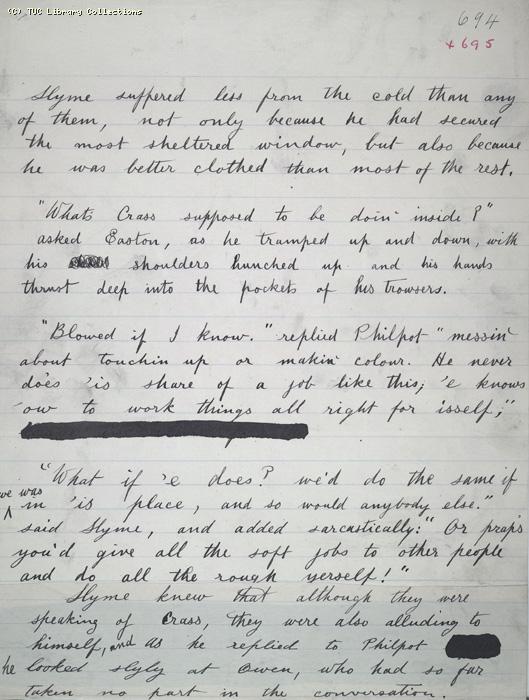 (C) TUC Library Collections
694
+695
Slyme suffered less from the cold than any
of them, not only because he had secured
the most sheltered window, but also because
he was better clothed than most of the rest.
"Whats Crass supposed to be doin' inside?"
asked Easton, as he tramped up and down, with
his shoulders hunched up and his hands
thrust deep into the pockets of his trowsers.
"Blowed if I know." replied Philpot "messin'
about touchin up or makin' colour. He never
does 'is share of a job like this; 'e knows
'ow to work things all right for isself;"
"What if 'e does? we'd do the same if
we was
in 'is place, and so would anybody else."
said Slyme, and added sarcastically: "Or praps
you'd give all the soft jobs to other people
and do all the rough yerself!"
Slyme knew that although they were
speaking of Crass, they were also alluding to
himself, and as he replied to Philpot
he looked slyly at Owen, who had so far
taken no part in the conversation.